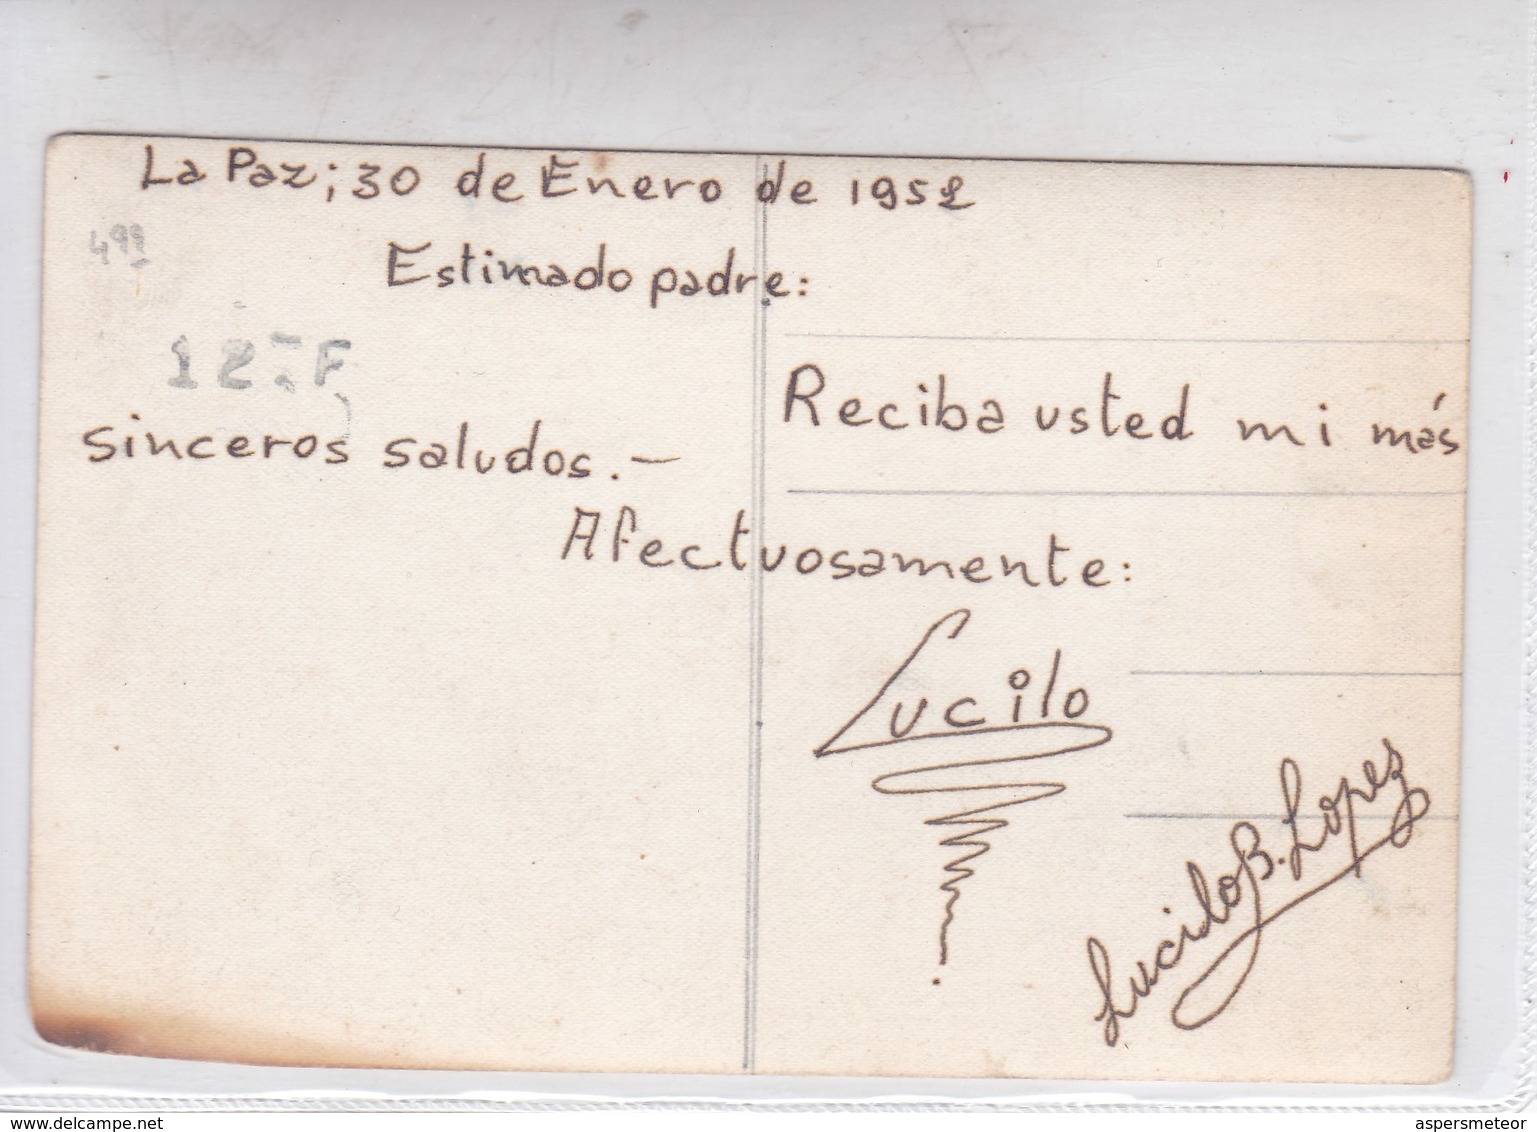 La Paz; 30 de Enero de 1952
499
Estimado padre:
Reciba usted mi más
sinceros saludos.-
Afectuosamente:
Lucilo
Lucilo B. Lopez
www.delcampe.net
aspersmeteor